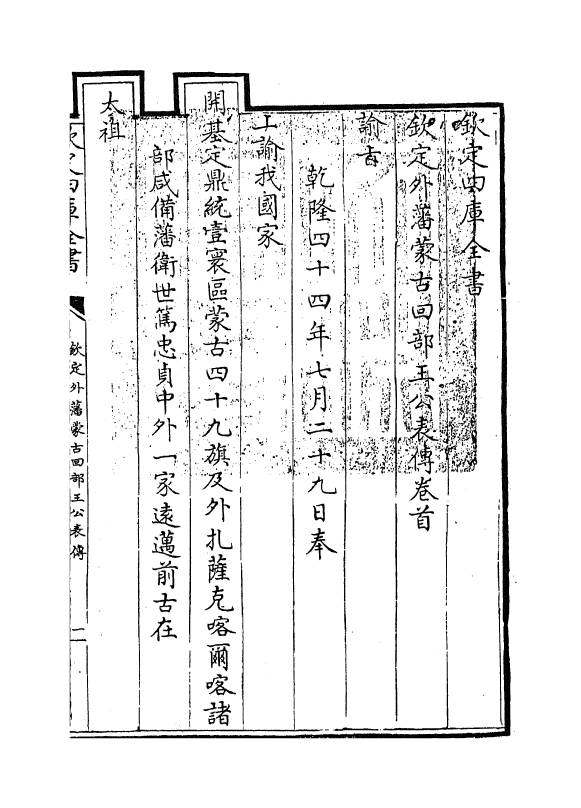 欽定四庫全書
欽定外藩蒙古回部王公表傳卷首
諭旨
乾隆四十四年七月二十九日奉
上諭我國家
開基定鼎統壹寰區蒙古四十九旗及外扎薩克喀爾喀諸
部咸備藩衛世篤忠貞中外一家遠邁前古在
太祖
欽定四庫全書
欽定外藩蒙古回部王公表傳